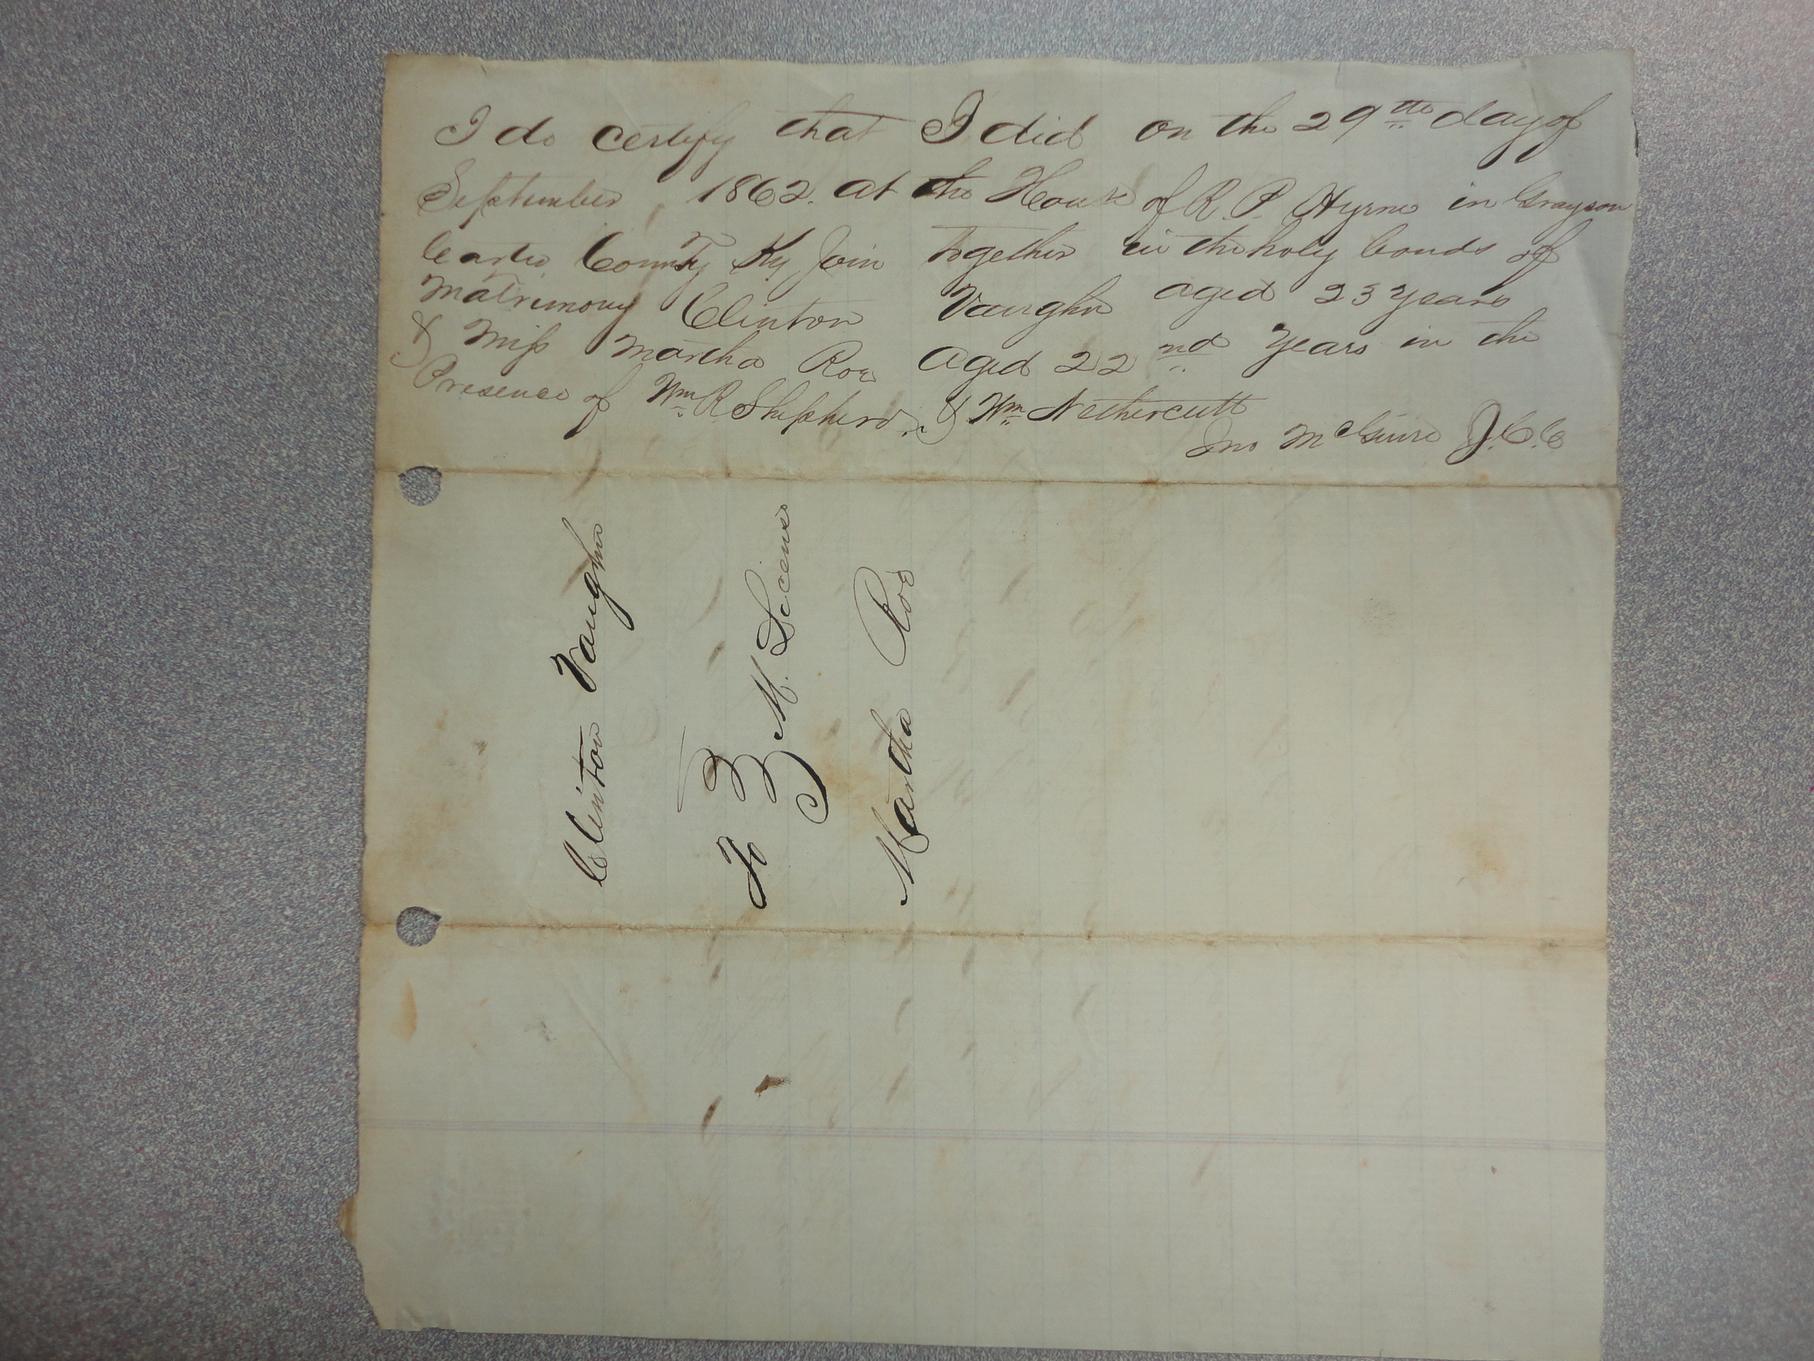 I do certify that I did on the 29th day of
September 1862. at the House of R. P. Hyrne in Grayson
Carter County Ky Join together in the holy bonds of
Matrimony Clinton Vaughn aged 23 years
& Miss Martha Roe aged 22nd years in the
Presence of Wm. R. Shepherd, & Wm. Nethercutt
Jno McGuire J.C.C
Clinton Vaughn
To M. Licens
Martha Roe